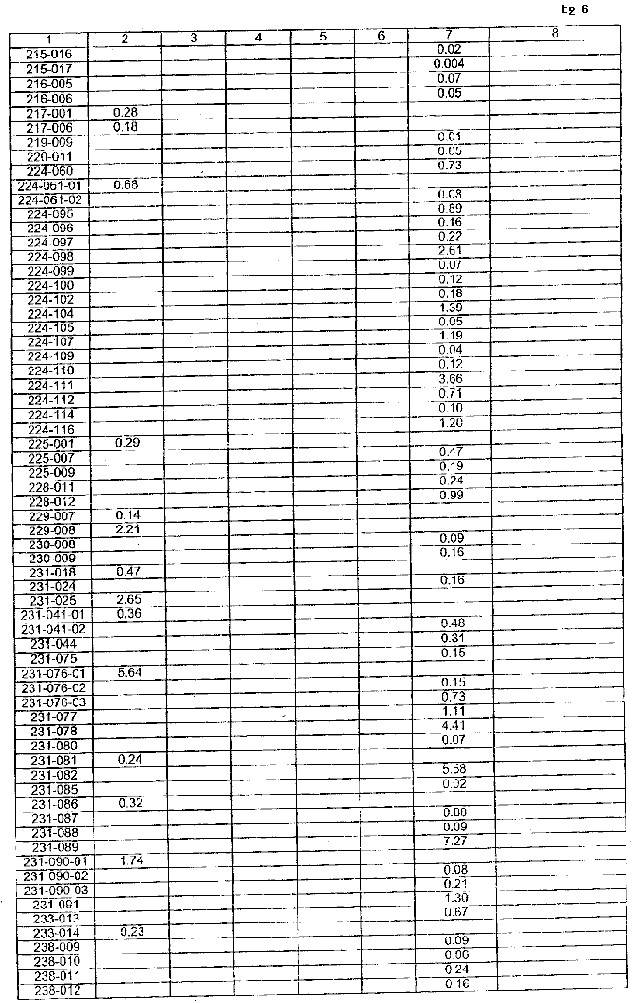 1 2 3 4 5 6 7 8
215-016 0.02
215-017 0.004
216-005 0.07
216-006 0.05
217-001 0.28
217-006 0.18
219-009 0.01
220-011 0.05
224-060 0.73
224-061-01 0.66
224-061-02 0.08
224-095 0.89
224-096 0.16
224-097 0.22
224-098 2.61
224-099 0.07
224-100 0.12
224-102 0.18
224-104 1.39
224-105 0.05
224-107 1.19
224-109 0.04
224-110 0.12
224-111 3.66
224-112 0.71
224-114 0.10
224-116 1.20
225-001 0.29
225-007 0.47
225-009 0.19
228-011 0.24
228-012 0.99
229-007 0.14
229-008 2.21
230-008 0.09
230-009 0.16
231-018 0.47
231-024 0.16
231-025 2.65
231-041-01 0.36
231-041-02 0.48
231-044 0.31
231-075 0.15
231-076-01 5.64
231-076-02 0.15
231-076-03 0.73
231-077 1.11
231-078 4.41
231-080 0.07
231-081 0.24
231-082 5.58
231-085 0.02
231-086 0.32
231-087
231-088 0.09
231-089 7.27
231-090-01 1.74
231-090-02 0.08
231-090-03 0.21
231-091 1.30
233-013 0.67
233-014 0.23
238-009 0.09
238-010 0.06
238-011 0.24
238-012 0.16